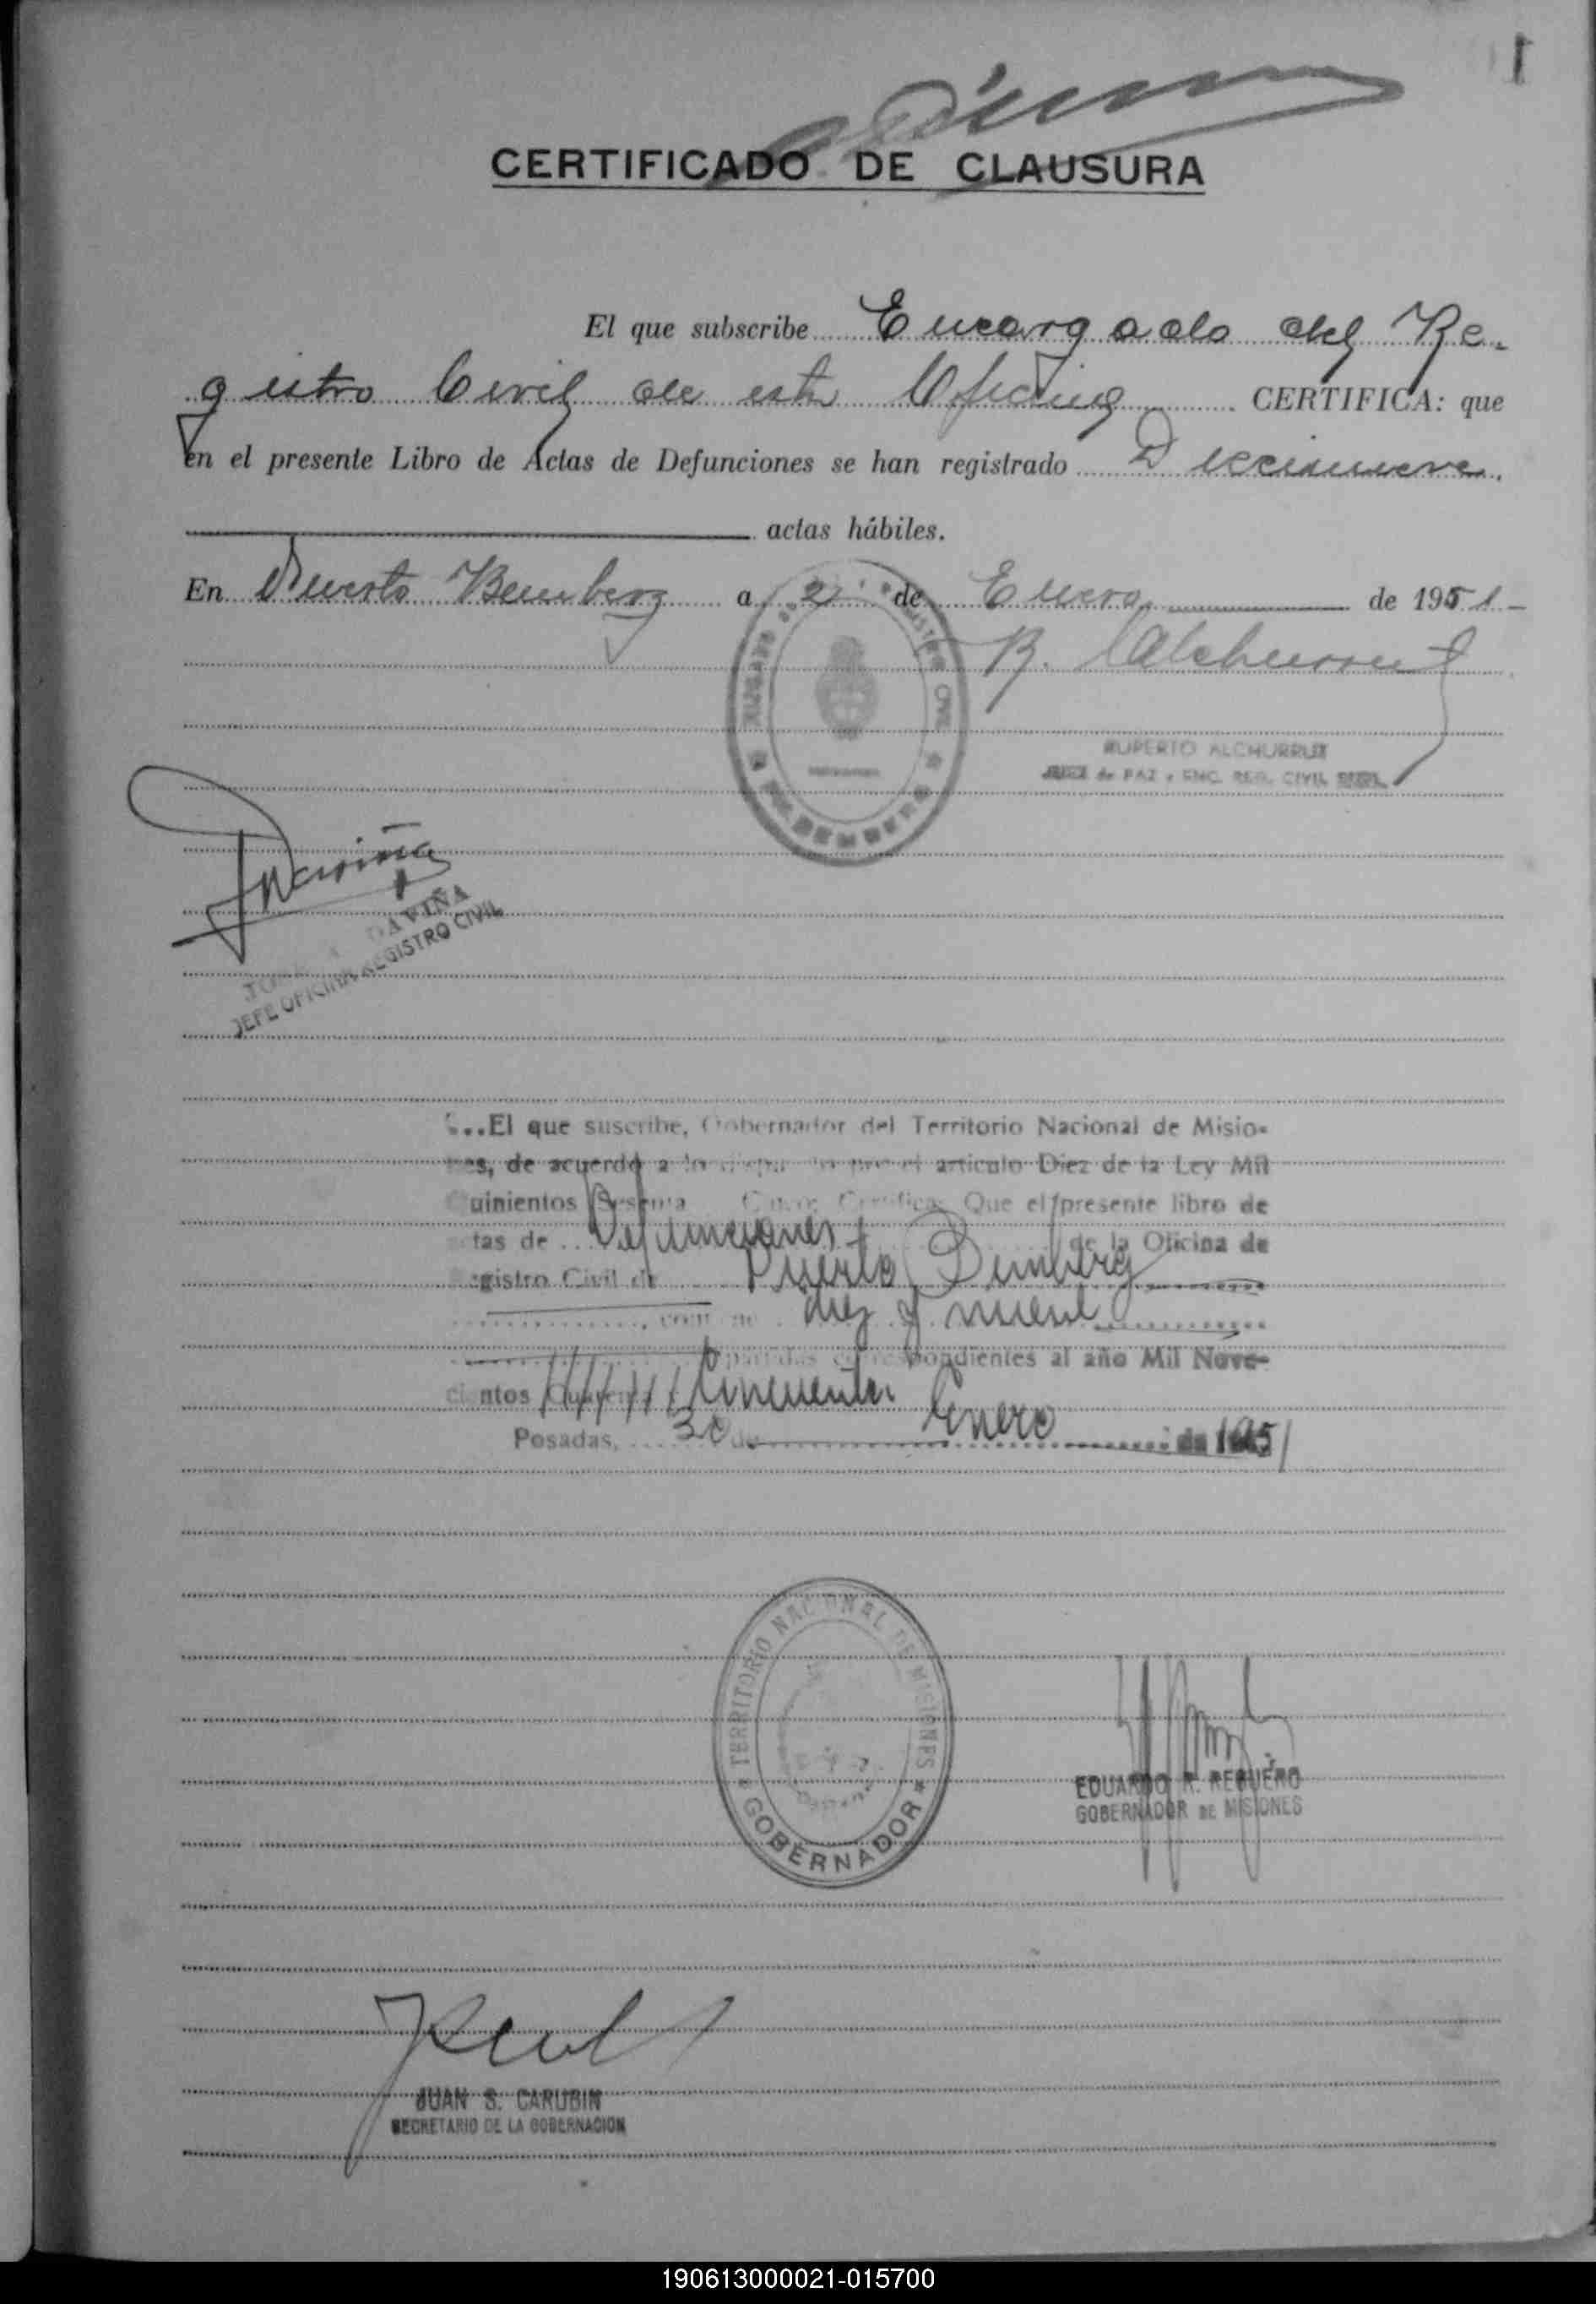 1
CERTIFICADO DE CLAUSURA
El que subscribe Encargado del Re-
gistro Civil de esta Oficina CERTIFICA: que
en el presente Libro de Actas de Defunciones se han registrado Diecinueve
actas hábiles.
En Puerto Bemberg a 2 de Enero de 1951
R. Alchurrut
RUPERTO ALCHURRUT
JUEZ de PAZ y ENC. REG. CIVIL
CIVIL
BEMBERG
DAVIÑA
JEFE OFICINA REGISTRO CIVIL
...El que suscribe, Gobernador del Territorio Nacional de Misio-
nes, de acuerdo a lo dispuesto por el artículo Diez de la Ley Mil
Quinientos Sesenta Cinco, Certifica: Que el presente libro de
actas de Defunciones de la Oficina de
Registro Civil de Puerto Bemberg
diez y nueve
partidas correspondientes al año Mil Nove-
cientos Cincuenta
Posadas, 30 de Enero de 1951
TERRITORIO NACIONAL DE MISIONES
GOBERNADOR
EDUARDO R. REQUERO
GOBERNADOR DE MISIONES
JUAN S. CARUBIN
SECRETARIO DE LA GOBERNACION
190613000021-015700